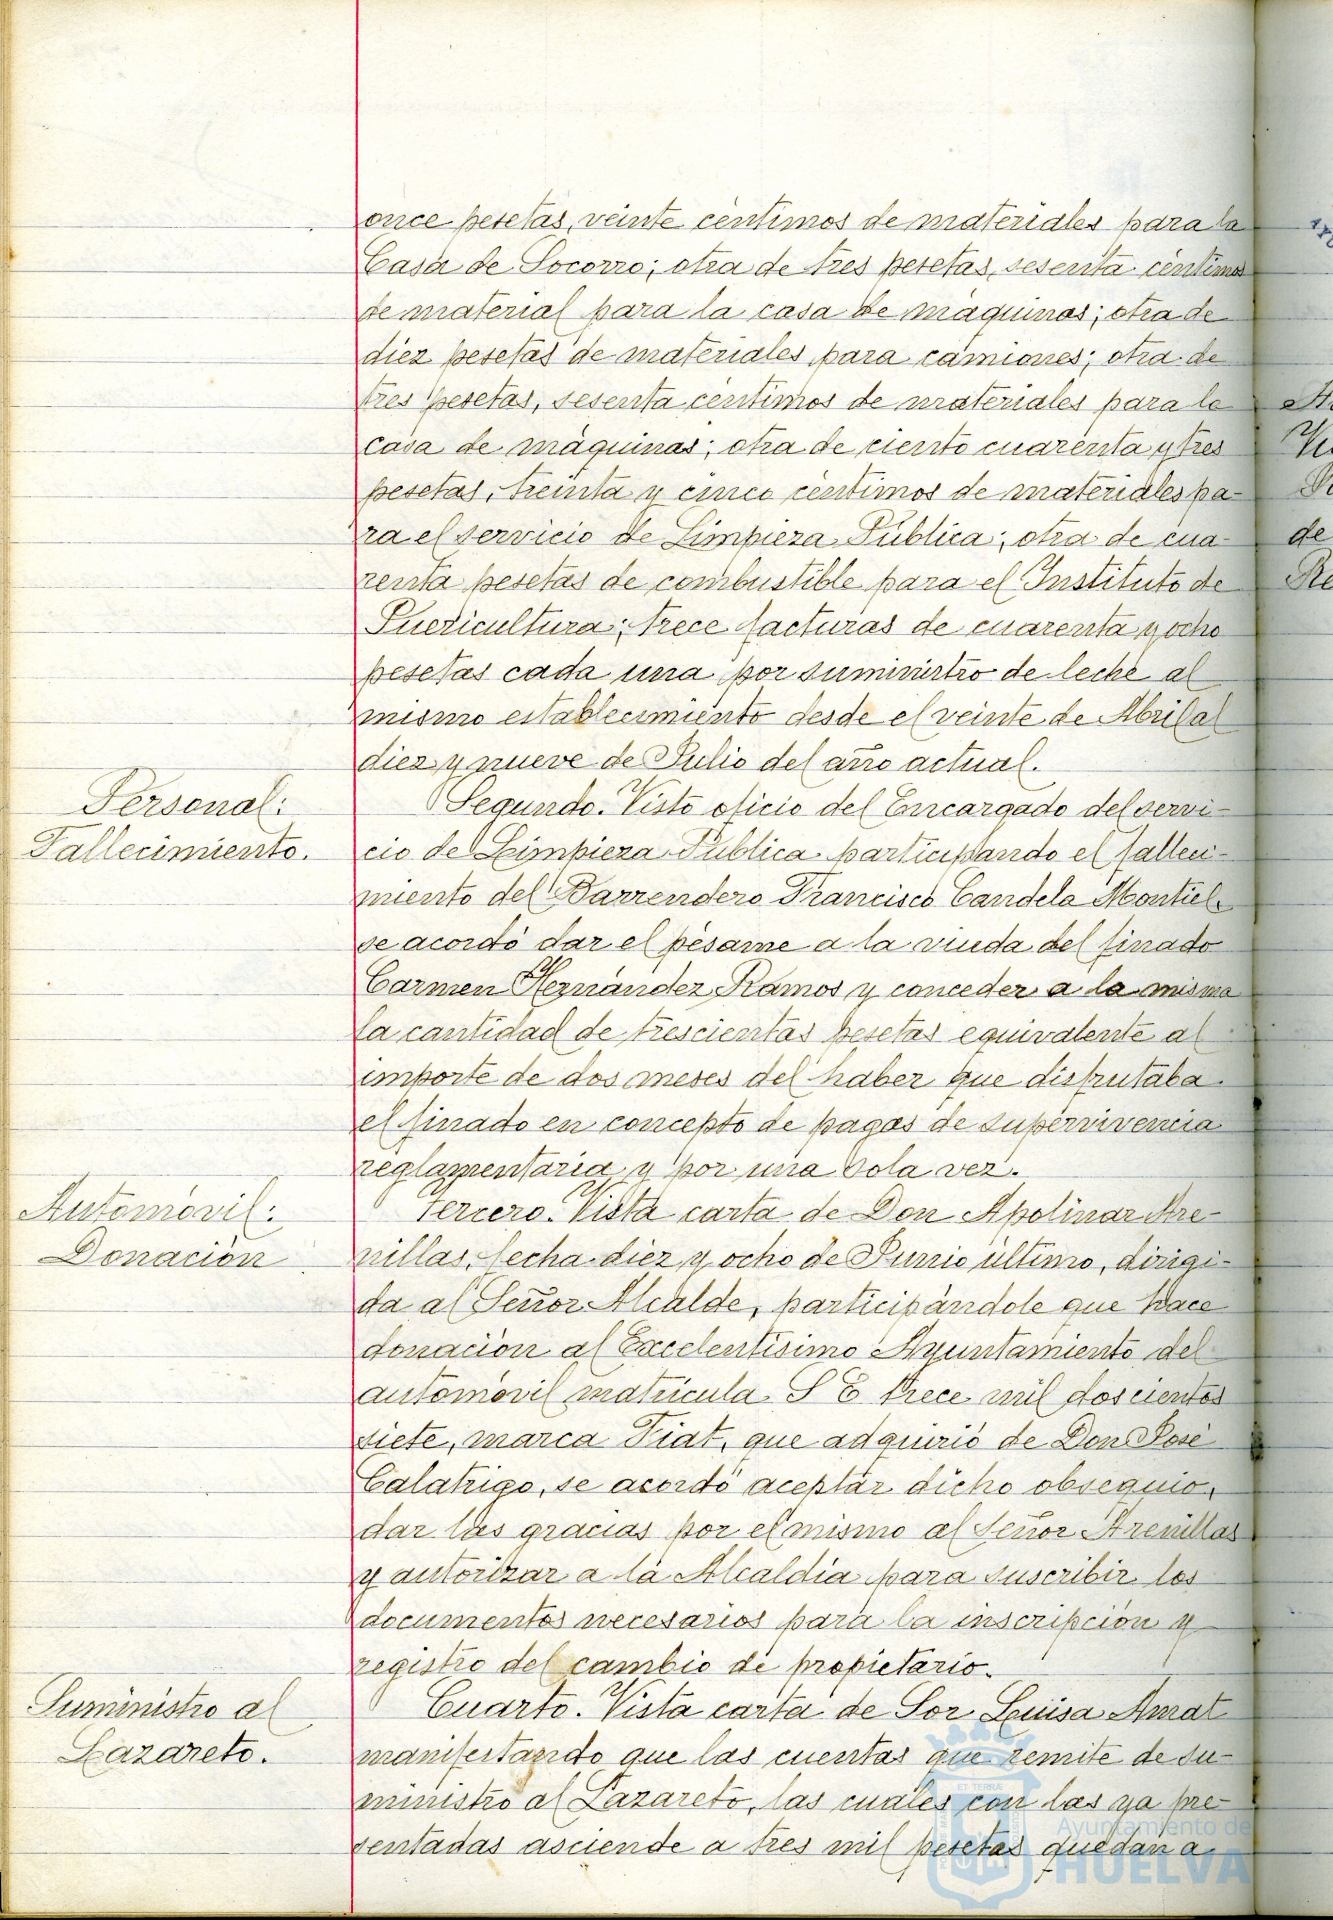 once pesetas, veinte céntimos de materiales para la
Casa de Socorro; otra de tres pesetas, sesenta céntimos
de material para la casa de máquinas; otra de
diez pesetas de materiales para camiones; otra de
tres pesetas, sesenta céntimos de materiales para la
casa de máquinas; otra de ciento cuarenta y tres
pesetas, treinta y cinco céntimos de materiales pa-
ra el servicio de Limpieza Pública; otra de cua-
renta pesetas de combustible para el Instituto de
Puericultura; trece facturas de cuarenta y ocho
pesetas cada una por suministro de leche al
mismo establecimiento desde el veinte de Abril al
diez y nueve de Julio del año actual.
Personal:
Fallecimiento.
Segundo. Visto oficio del Encargado del servi-
cio de Limpieza Pública participando el falleci-
miento del Barrendero Francisco Candela Montiel,
se acordó dar el pésame a la viuda del finado
Carmen Hernández Ramos y conceder a la misma
la cantidad de trescientas pesetas equivalente al
importe de dos meses del haber que disfrutaba
el finado en concepto de pagas de supervivencia
reglamentaria y por una sola vez.
Automóvil:
Donación
Tercero. Vista carta de Don Apolinar Are-
nillas, fecha diez y ocho de Junio último, dirigi-
da al Señor Alcalde, participándole que hace
donación al Excelentísimo Ayuntamiento del
automóvil matrícula S E trece mil doscientos
siete, marca Fiat, que adquirió de Don José
Calatrigo, se acordó aceptar dicho obsequio,
dar las gracias por el mismo al Señor Arenillas
y autorizar a la Alcaldía para suscribir los
documentos necesarios para la inscripción y
registro del cambio de propietario.
Suministro al
Lazareto.
Cuarto. Vista carta de Sor Luisa Amat
manifestando que las cuentas que remite de su-
ministro al Lazareto, las cuales con las ya pre-
sentadas asciende a tres mil pesetas quedan a
Ayuntamiento de
HUELVA